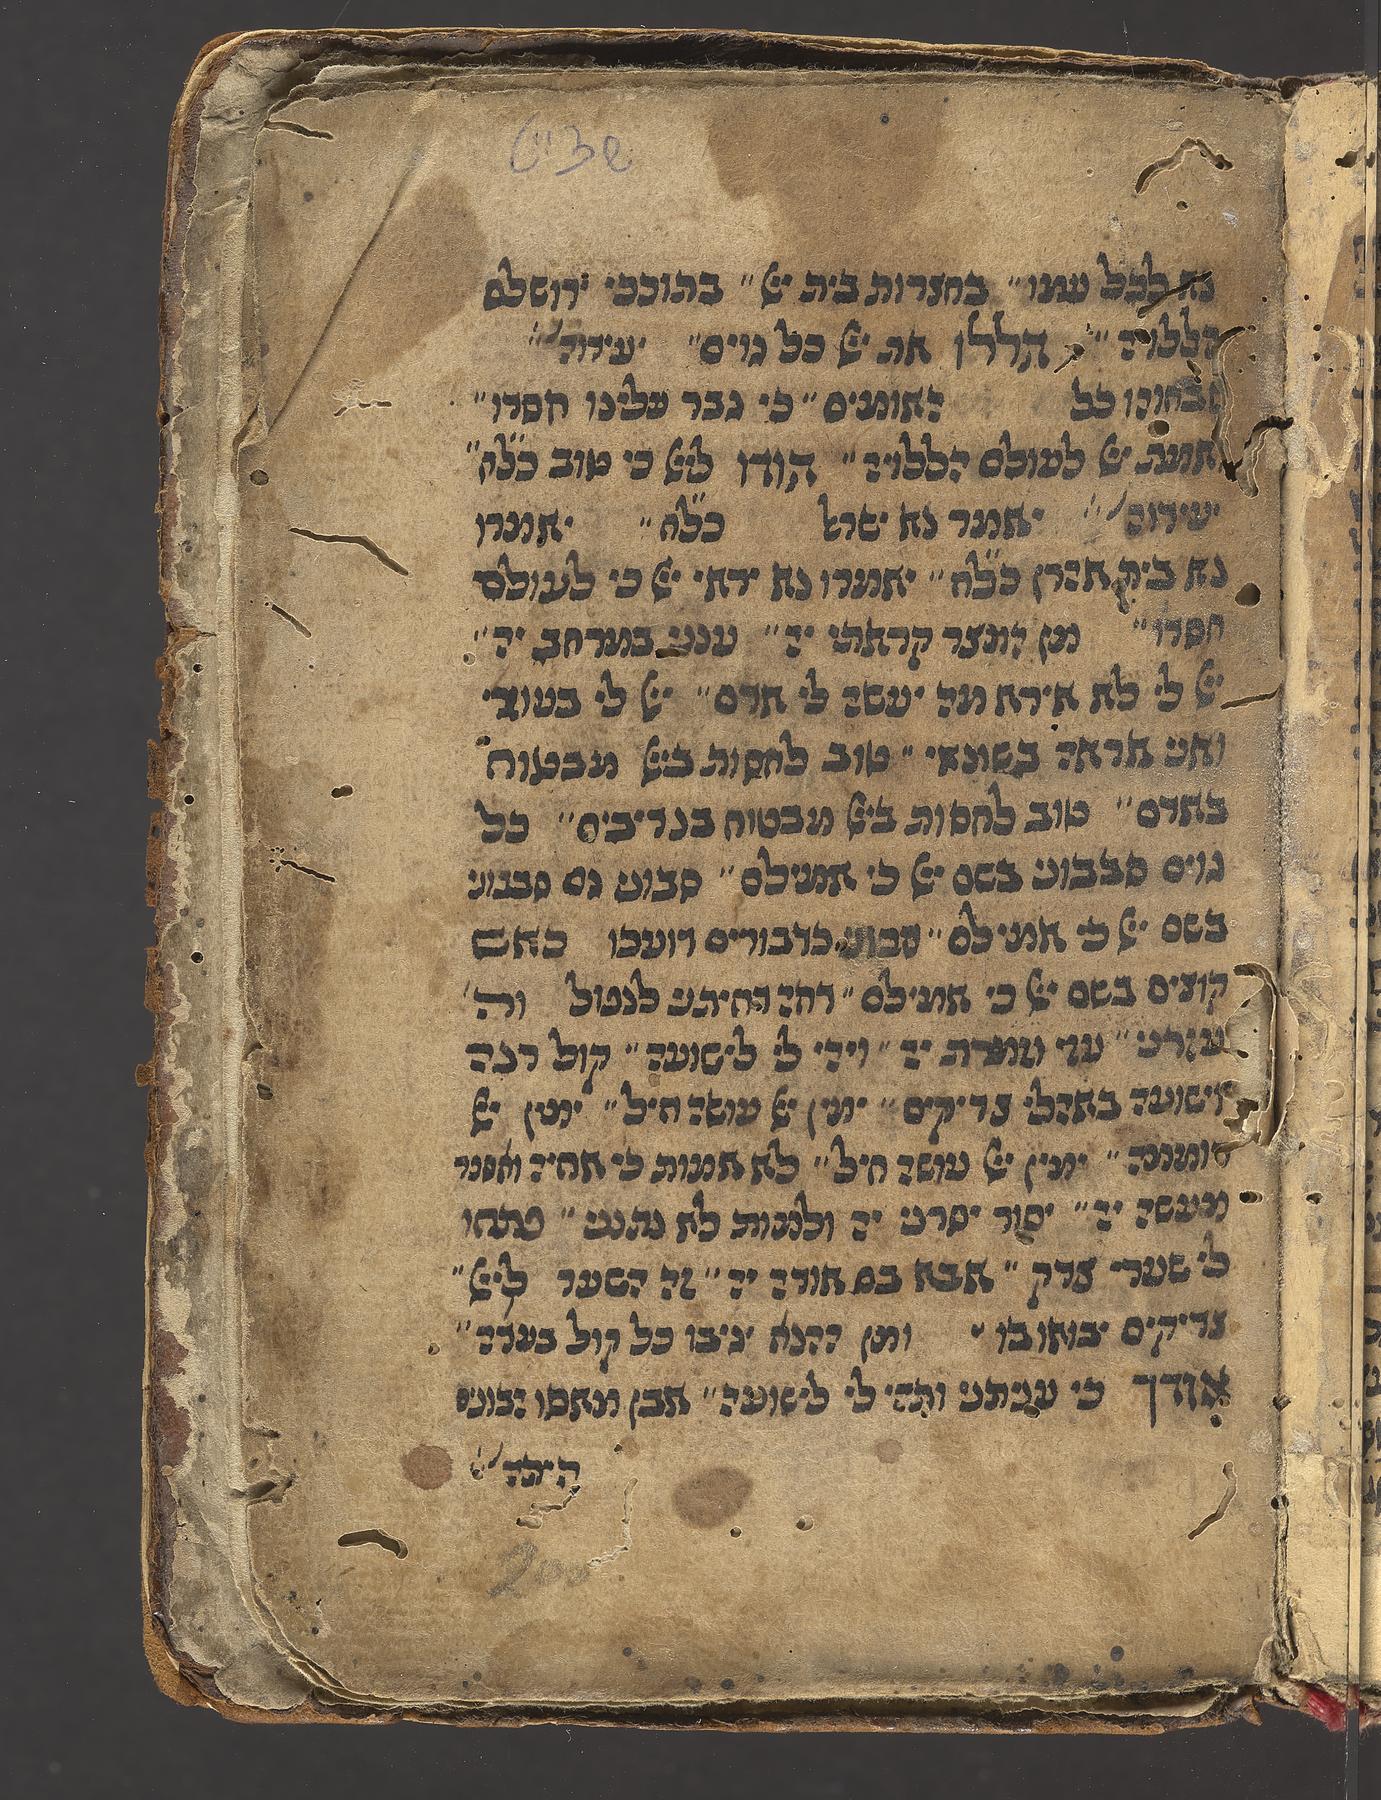 נא לכל עמו״ בחצרות בית יי״ בתוככי ירושלם
הללויה״ הללו את יי כל גוים״ יעידוה״
שבחוהו כל האומים״ כי גבר עלינו חסדו״
ואמת יי לעולם הללויה״ הודו ליי כי טוב כל״ח״
יעידוה״ יאמר נא ישראל כל״ח״ יאמרו
נא בית אהרן כל״ח״ יאמרו נא יראי יי כי לעולם
חסדו״ מן המצר קראתי יה״ ענני במרחב יה״
יי לי לא אירא מה יעשה לי אדם״ יי לי בעוזרי
ואני אראה בשונאי״ טוב לחסות ביי מבטוח
באדם״ טוב לחסות ביי מבטוח בנדיבים״ כל
גוים סבבוני בשם יי כי אמילם״ סבוני גם סבבוני
בשם יי כי אמילם״ סבוני כדבורים דועכו כאש
קוצים בשם יי כי אמילם״ דחה דחיתני לנפול וה׳
עזרני״ עזי וזמרת יה״ ויהי לי לישועה״ קול רנה
וישועה באהלי צדיקים״ ימין יי עושה חיל״ ימין יי
רוממה״ ימין יי עושה חיל״ לא אמות כי אחיה ואספר
מעשה יה״ יסור יסרני יה ולמות לא נתנני״ פתחו
לי שערי צדק״ אבא בם אודה יה״ זה השער ליי״
צדיקים יבואו בו״ ומן ההנא יגיבו כל קול בעדה״
אודך כי עניתני ותהי לי לישועה״ אבן מאסו הבונים
היתה׳
200